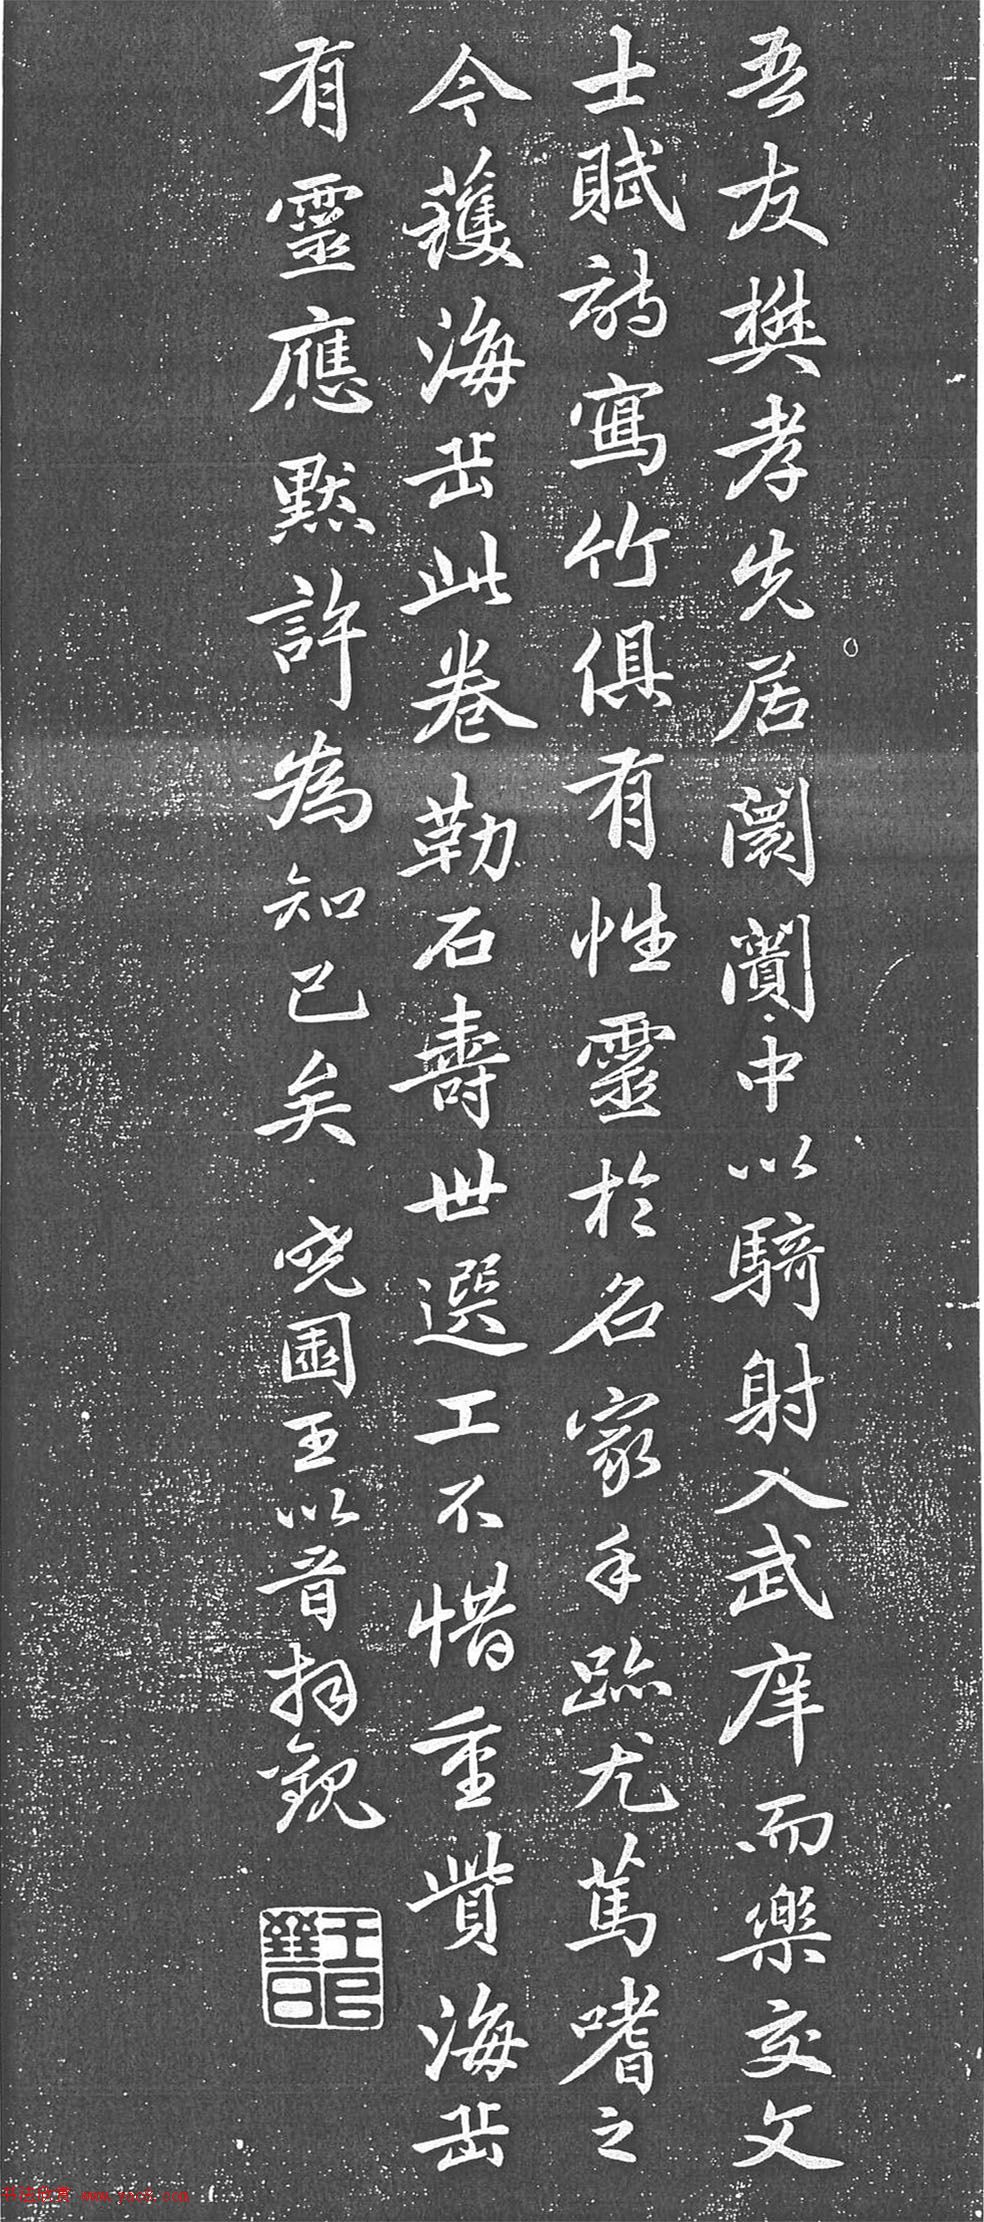 吾友樊孝先居闤闠中以騎射入武庠而樂交文
士賦詩寫竹俱有性靈於名家手跡尤篤嗜之
今獲海岳此卷勒石壽世選工不惜重貲海岳
有靈應默許為知己矣 曉園王以晉拜觀
www.yac8.com